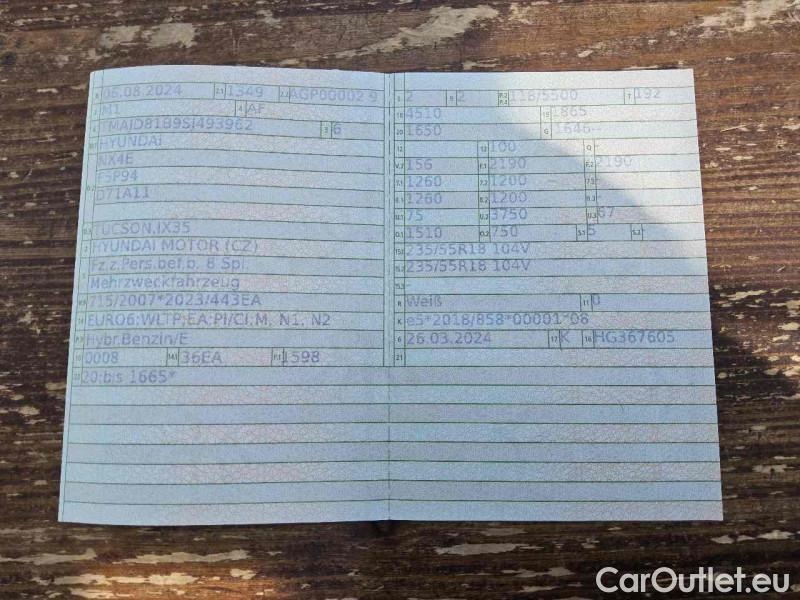 B 06.08.2024 2.1 1349 2.2 AGP00002 9
J M1 4 AF
E TMAJD81B9SJ493962 3 6
D.1 HYUNDAI
NX4E
D.2 F5P94
D71A11
D.3 TUCSON,IX35
2 HYUNDAI MOTOR (CZ)
5 Fz.z.Pers.bef.b. 8 Spl.
Mehrzweckfahrzeug
V.9 715/2007*2023/443EA
14 EURO6;WLTP;EA;PI/CI;M, N1, N2
P.3 Hybr.Benzin/E
10 0008 14.1 36EA P.1 1598
22 20:bis 1665*
L 2 9 2 P.2 P.4 118/5500 T 192
18 4510 19 1865
20 1650 G 1646--
12 - 13 100 Q -
V.7 156 F.1 2190 F.2 2190
7.1 1260 7.2 1200 7.3 -
8.1 1260 8.2 1200 8.3 -
U.1 75 U.2 3750 U.3 67
O.1 1510 O.2 750 S.1 5 S.2 -
15.1 235/55R18 104V
15.2 235/55R18 104V
15.3 -
R Weiß 11 0
K e5*2018/858*00001*08
6 26.03.2024 17 K 16 HG367605
21
CarOutlet.eu